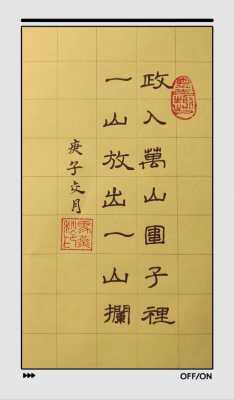 政入萬山圍子裡
一山放出一山攔
庚子文月
OFF/ON